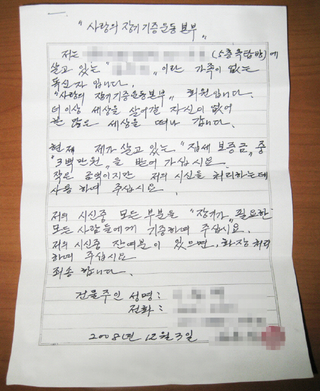 "사랑의 장기기증운동본부"
저는 (5층 옥탑방)에
살고 있는 " "이란 가족이 없는
독신자 입니다.
"사랑의 장기기증운동본부" 회원입니다.
더 이상 세상을 살아갈 자신이 없어
한 많은 세상을 떠나 갑니다.
현재 제가 살고 있는 "집세 보증금" 중
"3백만원"을 받어 가십시요.
작은 금액이지만 저의 시신을 처리하는데
사용하며 주십시요.
저의 시신중 모든 부분을 "장기가" 필요한
모든 사람들에게 기증하며 주십시요.
저의 시신중 잔여분이 있으면, 화장 처리
하며 주십시요
죄송 합니다.
건물주인 성명:
전화:
2008년 12월 3일